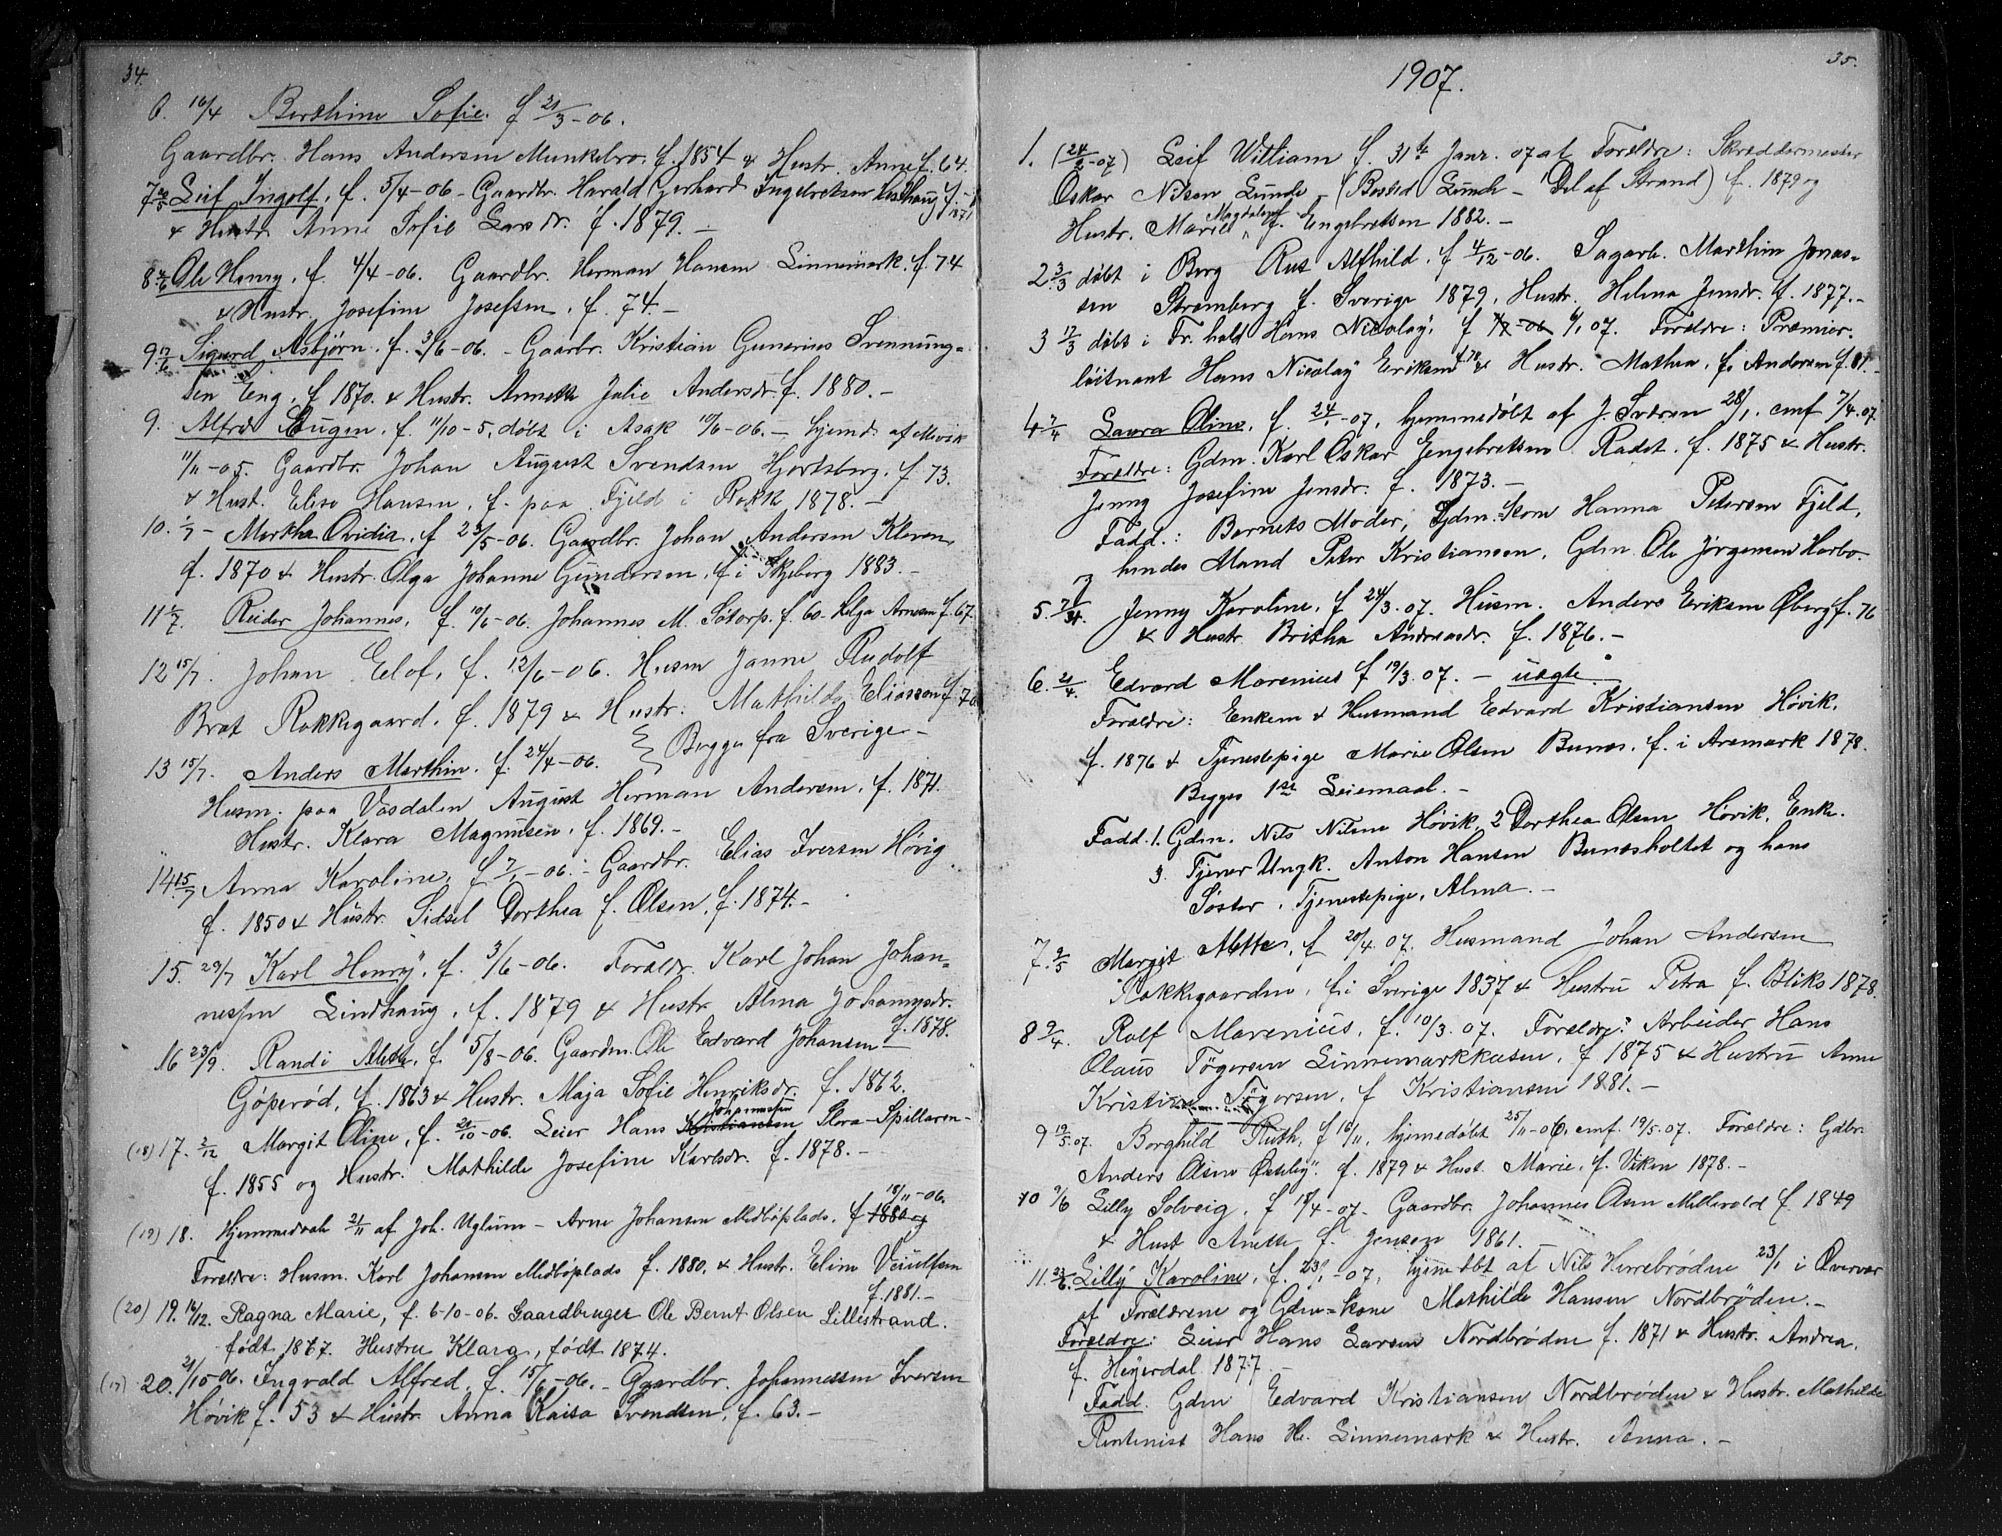 34.
6. 16/4 Berthine Sofie. f 21/3-06.
Gaardbr. Hans Andersen Munkebro. f. 1854 & Hustr. Anne f. 64.
7 Leif Ingolf, f. 5/4-06 - Gaardbr. Harald Gerhard Ingebretsen f. 1871
& Hustr. Anne Sofie Larsdr. f. 1879. -
8 Ole Henry, f. 4/4-06. Gaardbr. Herman Hansen Linnemark. f. 74
& Hustr. Josefine Josefsen, f. 74. -
9 17/6 Sigurd Asbjørn. f. 3/6-06. - Gaarbr. Kristian Gunerius Svenning-
sen Eng, f. 1870. & Hustr. Annette Julie Andersdr. f. 1880. -
9. Alfred Eugen. f. 11/10-5, døbt i Asak 10/6-06. - hjemd. af
11/11-05. Gaardbr. Johan August Svendsen Hjortsberg. f. 73.
& Hust. Elise Hansen, f. paa Fjeld i Rokk 1878. -
10. 1/7 - Martha Ovidia, f 23/5-06. Gaardbr. Johan Andersen Kleven
f. 1870 & Hustr. Olga Johanne Gundersen, f. i Skjeberg 1883. -
11 1/7. Reidar Johannes, f. 10/6-06. Johannes M. Sötorp. f. 60. Helga Arnesen f. 67.
12 15/7. Johan Elof, f. 12/6-06. Husm Janne Rudolf
Brat Rokkegaard, f. 1879 & Hustr: Mathilda Eliasson f. 76
13 15/7. Anders Marthin. f. 24/4-06. Begge fra Sverige -
Husm. paa Vasdalen August Herman Andersen, f. 1871.
Hustr. Klara Magnusen, f. 1869. -
14 15/7 Anna Karoline, f 7/ -06. - Gaardbr. Elias Iversen Høvig
f. 1850 & Hustr. Sidsel Dorthea f. Olsen, f. 1874. -
15. 29/7 Karl Henry, f. 3/6-06. Foreldr. Karl Johan Johan-
nessen Lindhaug, f. 1879 & Hustr Alma Johannesdr.
f. 1878.
16 23/9. Randi Alette, f. 5/8-06. Gaardm. Ole Edvard Johansen
Göperöd, f. 1863 & Hustr. Maja Sofie Henriksdr. f. 1862.
(18) 17. 2/12 Margit Oline, f. 21/10-06. Leier Hans Kristiansen Johannesen Slora-Spillaren-
f. 1855 og Hustr. Mathilde Josefine Karlsdr. f. 1878. -
(19) 18. Hjemmedøbt 21/11 af Joh. Uglum - Arne Johansen Medböplads. f 18/11-06. 1880 og
Foreldre: Husm. Karl Johansen Medböplads f. 1880, & Hustr. Eline
f. 1881. -
(20) 19. 16/12. Ragna Marie, f. 6-10-06. Gaardbruger Ole Bernt Olsen Lillestrand.
født 1867. Hustru Klara, født 1874.
(17) 20. 21/10-06. Ingvald Alfred. f. 15/6-06. - Gaardbr. Johannessen Iversen
Høvik f. 53 & Hustr. Anna Kaisa Svendsen, f. 63. -
35.
1907.
1. (24/2-07) Leif William f. 31te Janr. 07 at Foreldre: Skreddermester
Oskar Nilsen Lunde - (Bosted Lunde - Del af Strand) f. 1879 og
Hustr. Marie Magdalene f. Engebretsen 1882. -
2 3/3 døbt i Berg Rut Alfhild. f 4/12-06. Sagarb. Marthin Jonas-
sen Strømberg f. Sverige 1879, Hustr. Helma Jensdr. f. 1877. -
3 17/3 døbt i Fr.hald Hans Nicolay, f. 07. Foreldre: Premier-
løitnant Hans Nicolay Eriksen f. 78 & Hustr. Mathea, f. Andersen f. 81. -
4 7/4 Laura Oline, f. 24/1-07, hjemmedøbt af J. Sværen 28/1. cnf 7/4-07
Foreldre: Gdm. Karl Oskar Engebretsen Rødst. f. 1875 & Hustr.
Jenny Josefine Jensdr. f. 1873. -
Fadd.: Barnets Moder, Gdm.-Kone Hanna Petersen Fjeld,
hendes Mand Peter Kristiansen, Gdm. Ole Jørgensen Harbo-
5. Jenny Karoline, f 24/3.07. Husm. Anders Eriksen Øberg f. 76
& Hustr. Britha Andreasdr. f. 1876. -
6. 21/4. Edvard Marenius f 19/3.07. - uægte
Foreldre: Enkem & Husmand Edvard Kristiansen Høvik,
f. 1876 & Tjenestepige Marie Olsen Bunæs, f. i Aremark 1878.
Begges 1ste Leiemaal. -
Fadd. 1. Gdm. Nils Nilsen Høvik, 2 Dorthea Olsen Høvik, Enke.
3. Tjener Ungk. Anton Hansen Bunæsholtet og hans
Søster, Tjenestepige, Alma. -
7. 9/5 Margit Mette, f 20/4.07. Husmand Johan Andersen
Rokkegaarden, f. i Sverige 1837 & Hustru Petra f. Bliks 1878.
8 9/4. Rolf Marenius, f. 10/3.07. Foreldre: Arbeider Hans
Olaus Tögersen Linnemarkkasen, f 1875 & Hustru Anne
Kristine Tögersen, f Kristiansen 1881. -
9 19/5.07. Borghild Ruth, f 16/11, hjemedøbt 25/11-06, cnf. 19/5-07. Foreldre: Gdbr.
Anders Olsen Østeby. f. 1879 & Hust. Marie, f. Viken 1878. -
10 9/6 Lilly Solveig, f 18/4-07- Gaardbr. Johannes Olsen f. 1849
& Hust Anette f. Jensen 1861. -
11. 23/6. Lilly Karoline, f. 23/1-07, hjemdøbt af Nils Herrebrøden 23/1 i Overvær
af Foreldrene og Gdm-Kone Mathilde Hansen Nordbrøden. -
Foreldre: Leier Hans Larsen Nordbrøden f. 1871 & Hustr. Andrea,
f. Heyerdal 1877. -
Fadd. Gdm Edvard Kristiansen Nordbrøden & Hustr. Mathilde
Rentenist Hans H. Linnemark & Hustr. Anna. -